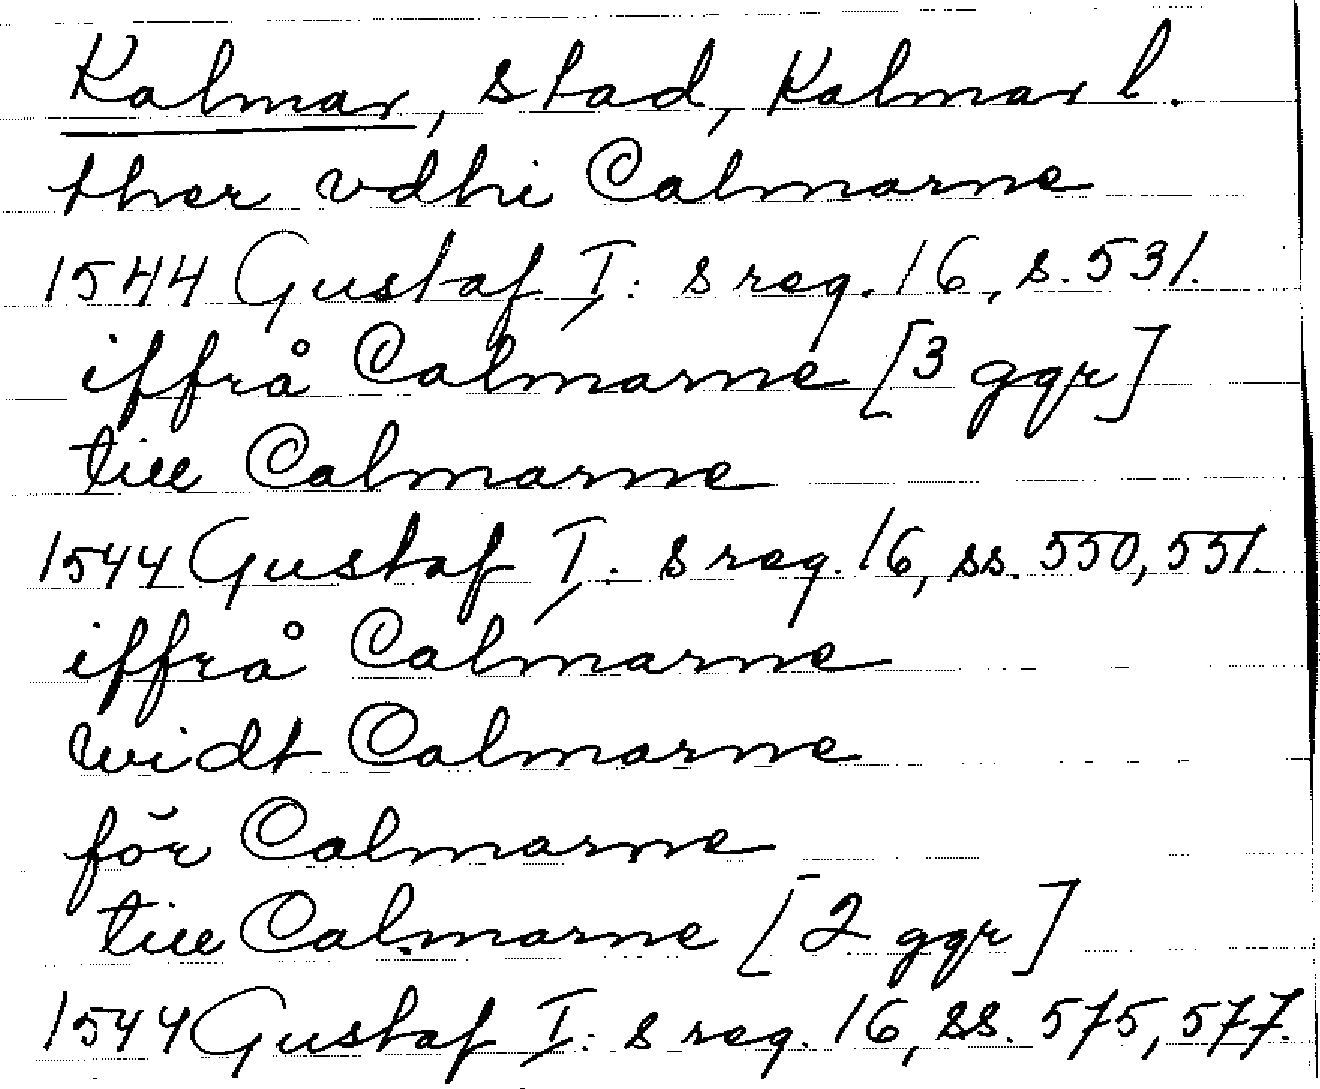 Kalmar, stad, Kalmar l.
ther vdhi Calmarne
1544 Gustaf I: s reg. 16, s. 531.
iffrå Calmarne [3 ggr]
till Calmarne
1544 Gustaf I: s reg. 16, ss. 550, 551.
iffrå Calmarne
widt Calmarne
för Calmarne
till Calmarne [2 ggr]
1544 Gustaf I: s reg. 16, ss. 575, 577.